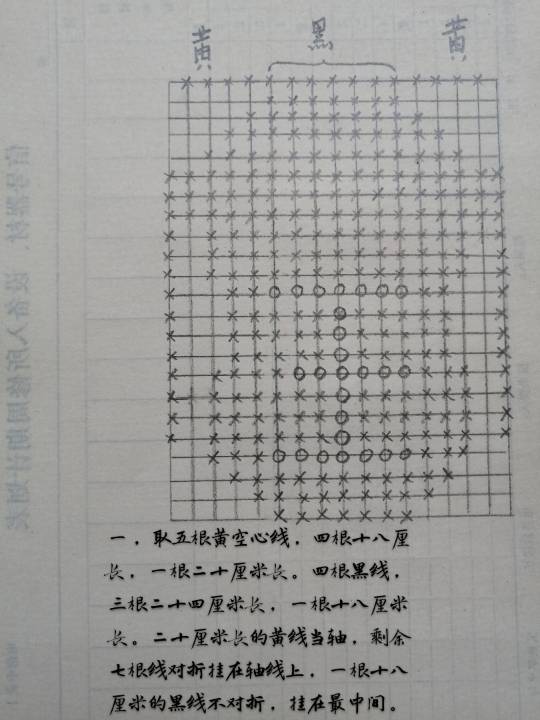 黄 黑 黄
一，取五根黄空心线，四根十八厘
长，一根二十厘米长。四根黑线，
三根二十四厘米长，一根十八厘米
长。二十厘米长的黄线当轴，剩余
七根线对折挂在轴线上，一根十八
厘米的黑线不对折，挂在最中间。